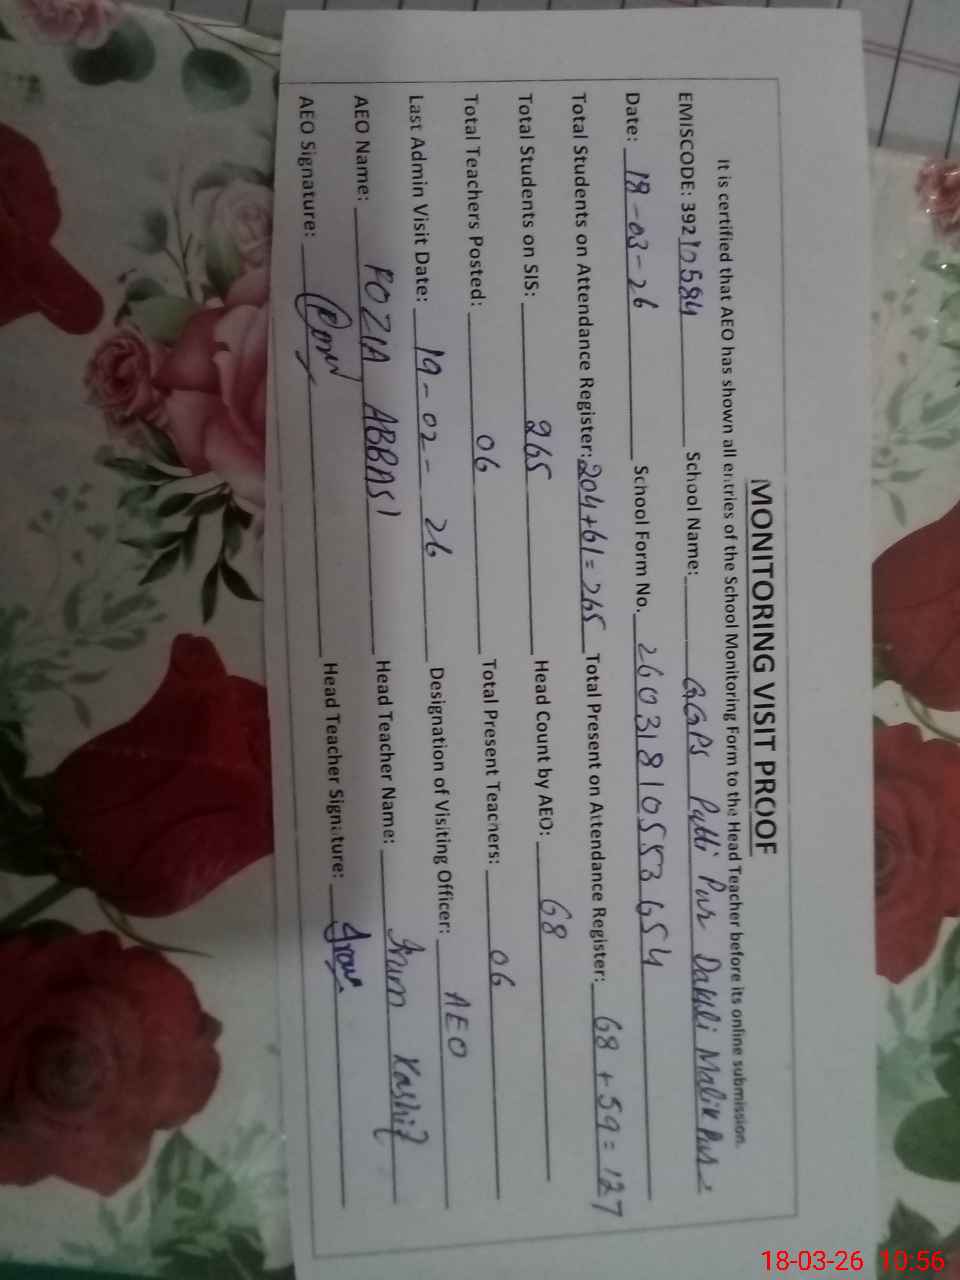 MONITORING VISIT PROOF
It is certified that AEO has shown all entries of the School Monitoring Form to the Head Teacher before its online submission.
EMISCODE: 39210584 School Name: GGPS Patti Pur Dakhli Malik Pur
Date: 18-03-26 School Form No. 2603181055 3654
Total Students on Attendance Register: 204+61=265 Total Present on Attendance Register: 68+59=127
Total Students on SIS: 265 Head Count by AEO: 68
Total Teachers Posted: 06 Total Present Teachers: 06
Last Admin Visit Date: 19-02-26 Designation of Visiting Officer: AEO
AEO Name: FOZIA ABBASI Head Teacher Name: Irum Kashif
AEO Signature: Head Teacher Signature: Irum
18-03-26 10:56